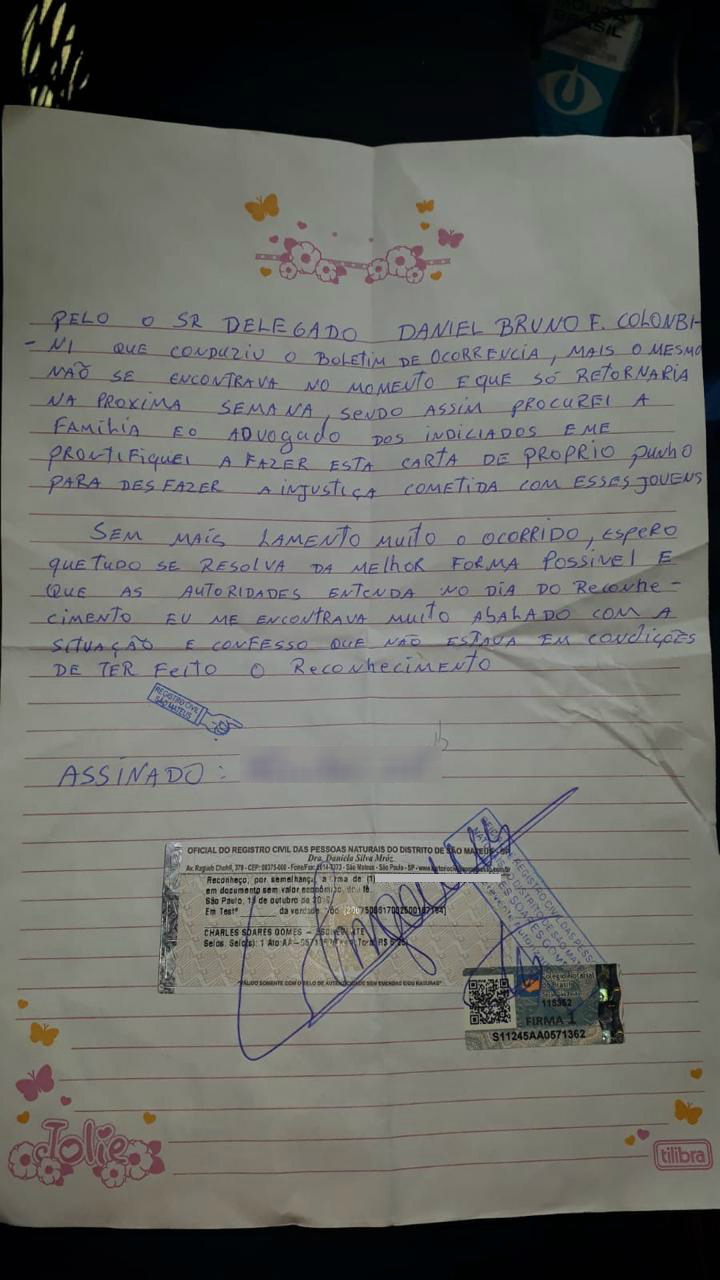 BRASIL
PELO O SR DELEGADO DANIEL BRUNO F. COLONBI-
- NI QUE CONDUZIU O BOLETIM DE OCORRENCIA, MAIS O MESMO
NÃO SE ENCONTRAVA NO MOMENTO E QUE SÓ RETORNARIA
NA PROXIMA SEMANA, SENDO ASSIM PROCUREI A
FAMILIA E O ADVOGADO DOS INDICIADOS E ME
PRONTIFIQUEI A FAZER ESTA CARTA DE PROPRIO PUNHO
PARA DESFAZER A INJUSTIÇA COMETIDA COM ESSES JOVENS
SEM MAIS LAMENTO MUITO O OCORRIDO, ESPERO
QUE TUDO SE RESOLVA DA MELHOR FORMA POSSIVEL E
QUE AS AUTORIDADES ENTENDA NO DIA DO RECONHE-
CIMENTO EU ME ENCONTRAVA MUITO ABALADO COM A
SITUAÇÃO E CONFESSO QUE NÃO ESTAVA EM CONDIÇÕES
DE TER FEITO O RECONHECIMENTO
REGISTRO CIVIL
SÃO MATEUS
ASSINADO:
OFICIAL DO REGISTRO CIVIL DAS PESSOAS NATURAIS DO DISTRITO DE SÃO MATEUS - SP
Dra. Daniela Silva Mróz
Av. Ragueb Chohfi, 379 - CEP: 08375-000 - Fone/Fax: 2014-7373 - São Mateus - São Paulo - SP
Reconheço, por semelhança, a firma de (1)
em documento sem valor econômico, dou fé.
São Paulo, de outubro de
Em Test° da verdade.
CHARLES SOARES GOMES - ESCREVENTE
Selos: Selo(s): 1 Ato:AA-
*VÁLIDO SOMENTE COM O SELO DE AUTENTICIDADE SEM EMENDAS E/OU RASURAS*
Colegio Notarial
do Brasil
FIRMA 1
S11245AA0571362
Jolie
tilibra